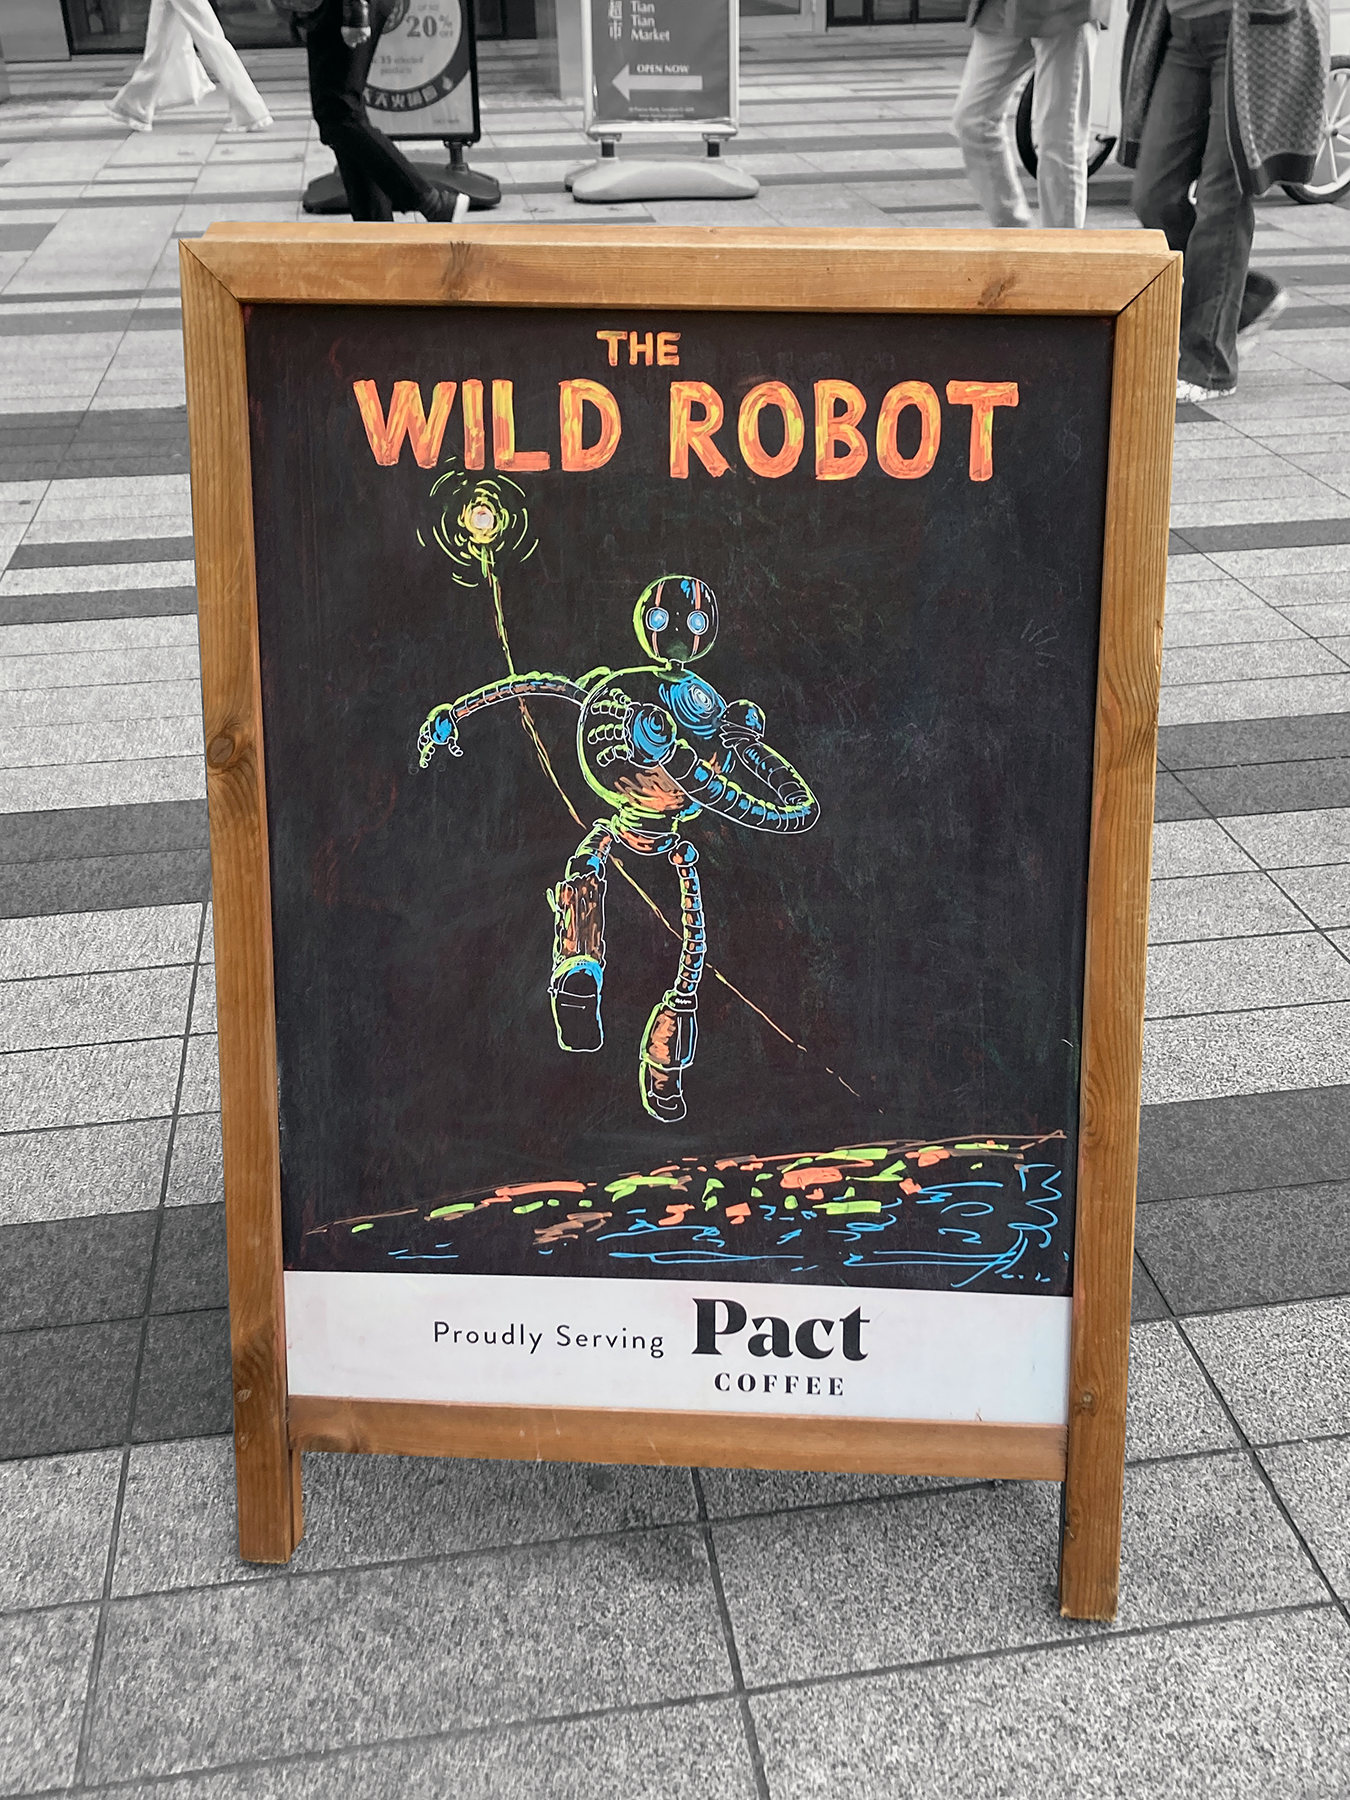 20%
OFF
selected
products
Tian
Tian
Market
OPEN NOW
THE
WILD ROBOT
Proudly Serving Pact
COFFEE